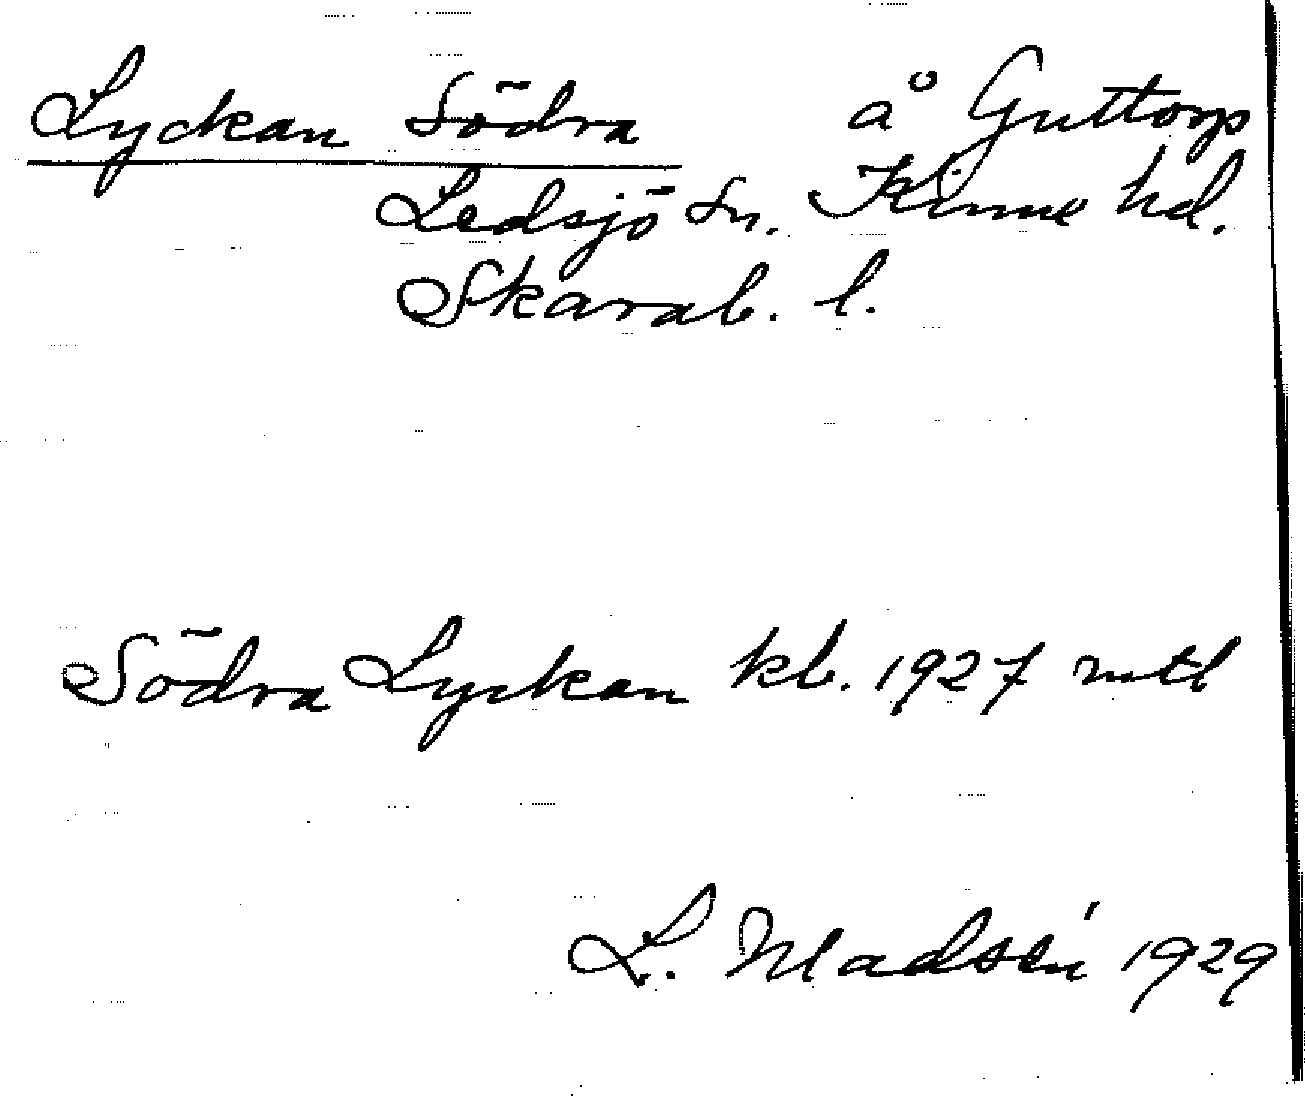 Lyckan Södra å Guttorp
Ledsjö sn. Kinne hd.
Skarab. l.
Södra Lyckan kb. 1927 mtl
L. Madsén 1929